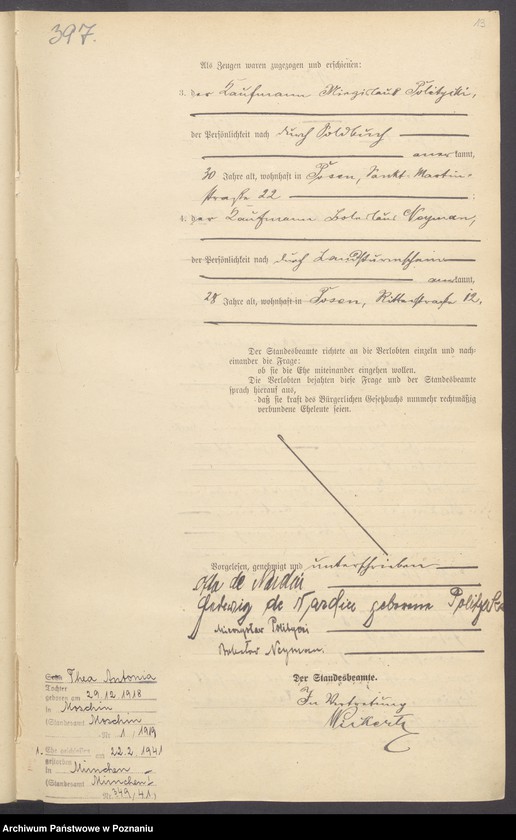 397.
13
Als Zeugen waren zugezogen und erschienen:
3. der Kaufmann Miezislaus Politycki,
der Persönlichkeit nach durch Soldbuch
anerkannt,
30 Jahre alt, wohnhaft in Posen, Sankt-Martin-
straße 22
4. der Kaufmann Boleslaus Neyman,
der Persönlichkeit nach durch Landsturmschein
anerkannt,
28 Jahre alt, wohnhaft in Posen, Ritterstraße 12.
Der Standesbeamte richtete an die Verlobten einzeln und nach-
einander die Frage:
ob sie die Ehe miteinander eingehen wollen.
Die Verlobten bejahten diese Frage und der Standesbeamte
sprach hierauf aus,
daß sie kraft des Bürgerlichen Gesetzbuchs nunmehr rechtmäßig
verbundene Eheleute seien.
Vorgelesen, genehmigt und unterschrieben
de Nardin
Hedwig de Nardin geborene
Boleslaw Neyman.
Der Standesbeamte.
In Vertretung
Thea Antonia
Tochter
geboren am 29.12.1918
in Moschin
(Standesamt Moschin
Nr. 1/1919
1. Ehe geschlossen am 22.2.1941
in München
(Standesamt München I
Nr. 349/41)
Archiwum Państwowe w Poznaniu